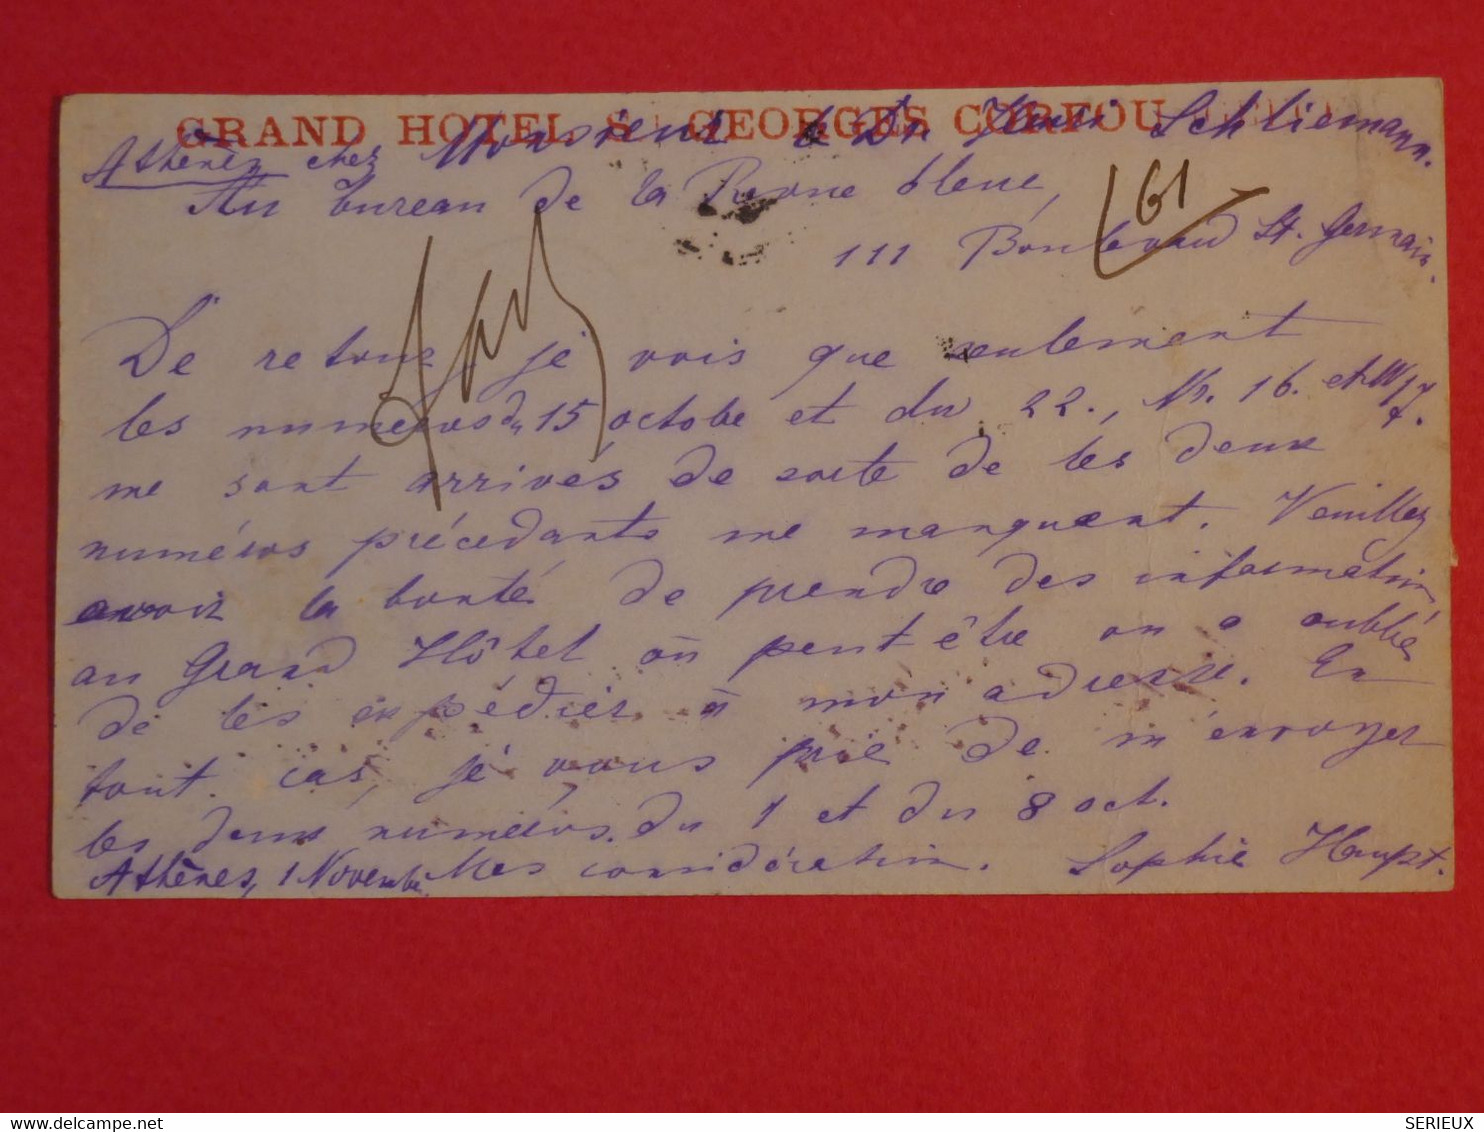 GRAND HOTEL St GEORGES CORFOU
Athènes chez Monsieur le Dr Henri Schliemann.
Au bureau de la Revue bleue,
61
111 Boulevard St. Germain.
De retour je vois que seulement
les numéros du 15 octobe et du 22., Nr. 16. et 17
me sont arrivés de sorte de les deux
numéros précédants me manquent. Veuillez
avoir la bonté de prendre des information
au Grand Hôtel où peut être on a oublié
de les expédier à mon adresse. En
tout cas, je vous prie de m'envoyer
les deux numéros du 1 et du 8 oct.
Athènes, 1 Novembre Mes considération. Sophie Haupt.
SERIEUX
www.delcampe.net